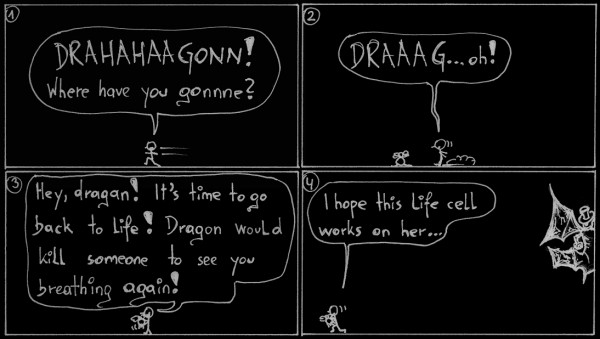 1
DRAHAHAAGONN!
Where have you gonnne?
2
DRAAAG...oh!
3
Hey, dragan! It's time to go
back to life! Dragon would
kill someone to see you
breathing again!
4
I hope this life cell
works on her...